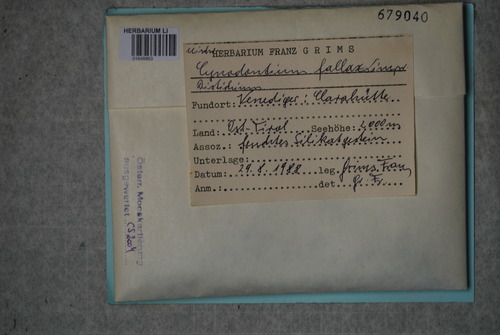 679040
HERBARIUM LI
HERBARIUM FRANZ GRIMS
Cynodontium fallax Limpr
Distichium
Fundort: Venediger: Clarahütte
Land: Ost-Tirol Seehöhe: 2000m
Assoz.: feuchtes Silikatgestein
Unterlage:
Datum: 29.8.1988 leg. Grims Franz
Anm. det. Gr. F.
Österr. Mooskartierung
ausgewertet CS 2004